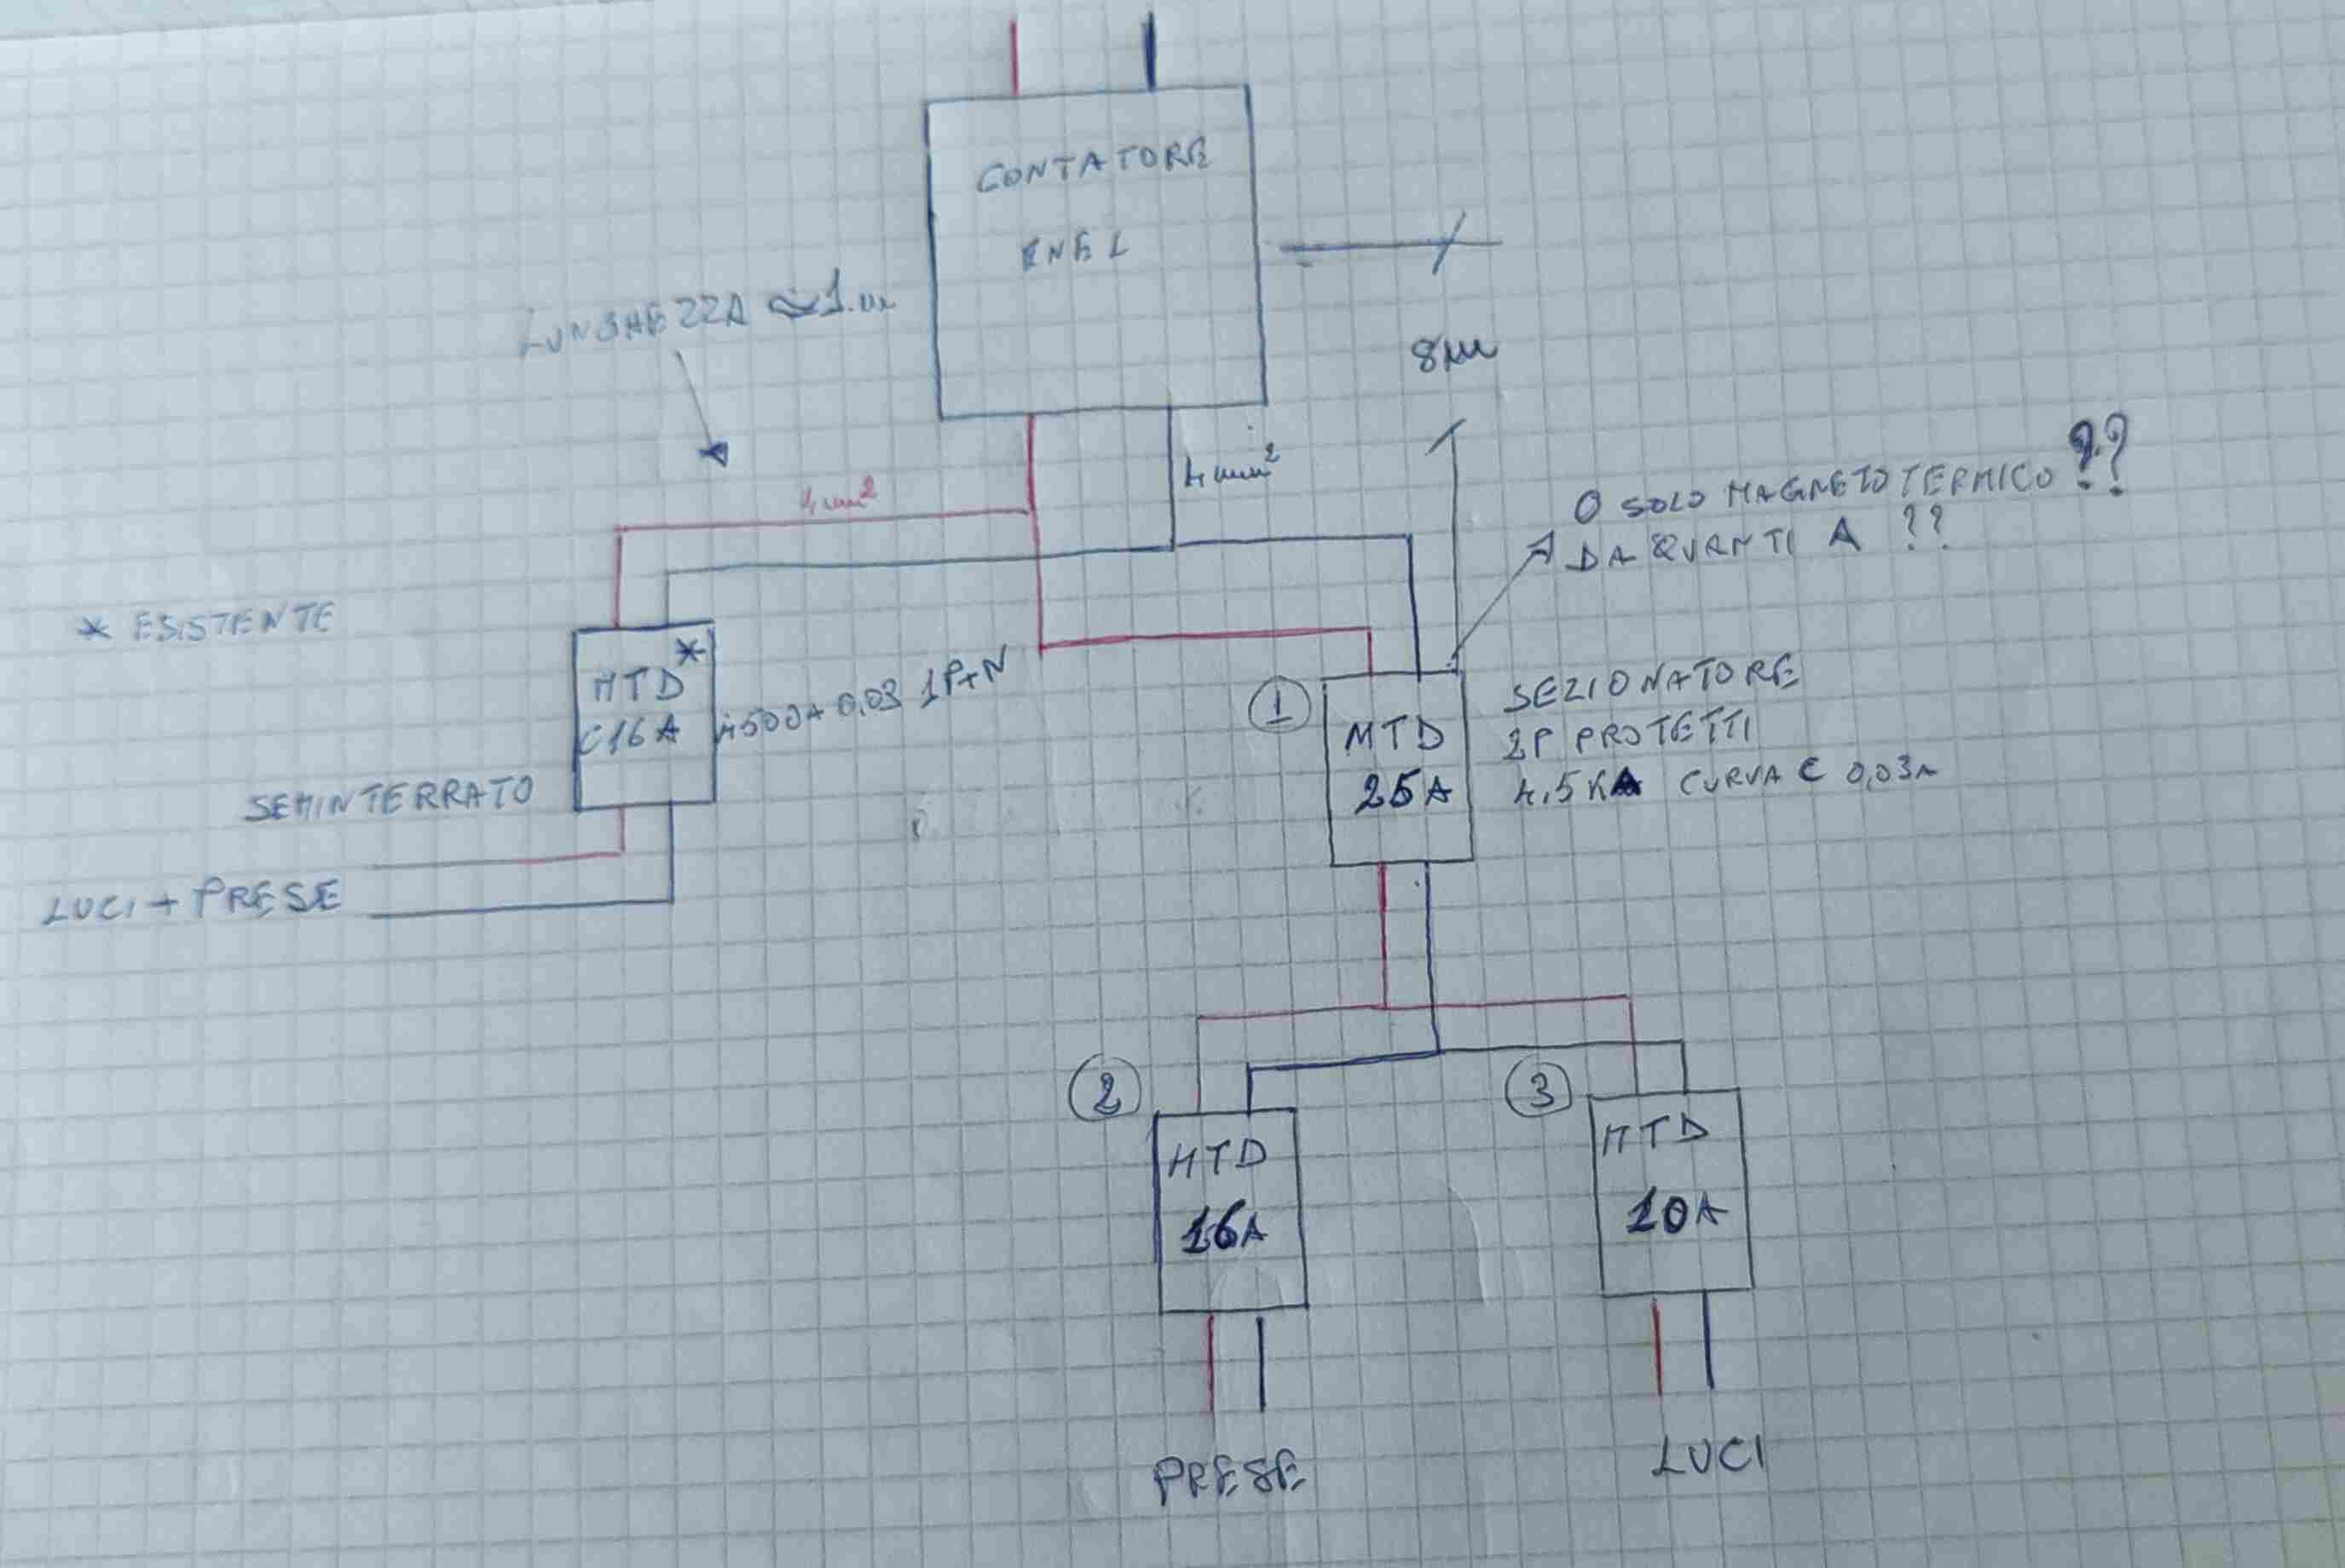 CONTATORE
ENEL
LUNGHEZZA ≃ 1 m
8m
4 mm²
4 mm²
O SOLO MAGNETOTERMICO ??
DA QUANTI A ??
* ESISTENTE
MTD *
C16A
4500A 0,03 1P+N
SEMINTERRATO
LUCI + PRESE
1
MTD
25A
SEZIONATORE
2P PROTETTI
4.5KA CURVA C 0,03A
2
MTD
16A
3
MTD
10A
PRESE
LUCI